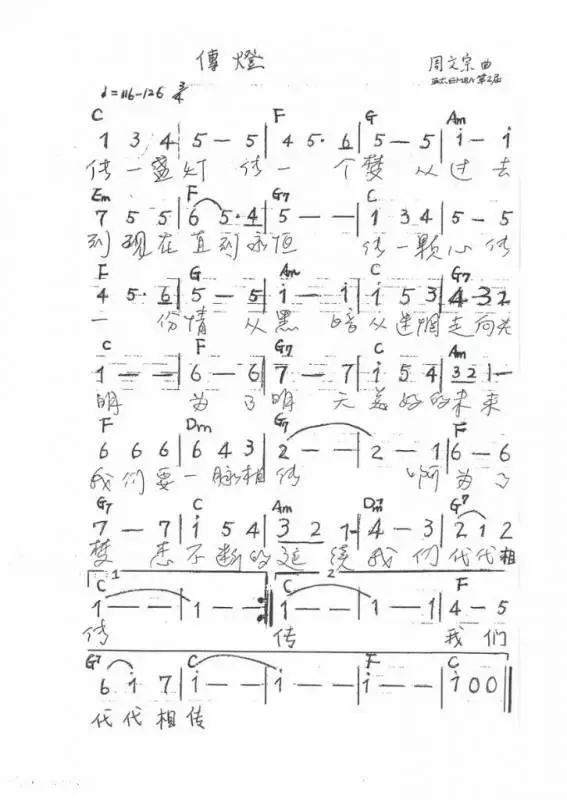 傳燈
周文宗曲
亚太EMBA第2届
♩=116-126 3/4
C F G Am
1 3 4 | 5 — 5 | 4 5· 6 | 5 — 5 | i — i
传一盏灯 传一 个梦 从过去
Em F G7 C
7 5 5 | 6 5· 4 | 5 — — | 1 3 4 | 5 — 5
到现在直到永恒 传一颗心传
F G Am C G7
4 5· 6 | 5 — 5 | i — i | i 5 3 | 4 3 2
一 份情 从黑 暗从迷惘走向光
C F G7 C Am
1 — — | 6 — 6 | 7 — 7 | i 5 4 | 3 2 1 —
明 为了明 天美好的未来
F Dm G7 F
6 6 6 | 6 4 3 | 2 — — | 2 — 1 | 6 — 6
我们要一脉相传 啊为了
G7 C Am Dm7 G7
7 — 7 | i 5 4 | 3 2 1· | 4 — 3 | 2 1 2
梦 想不断的延续我们代代相
1 2
C C F
1 — — | 1 — — :| 1 — — | 1 — 1 | 4 — 5
传 传 我们
G7 C F C
6 i 7 | i — — | i — — | i — — | i 0 0 ||
代代相传